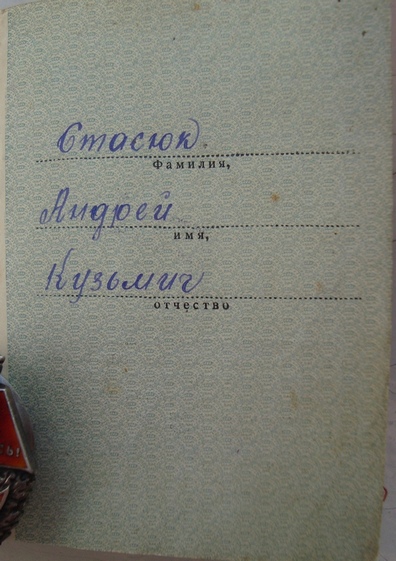 Стасюк
Фамилия,
Андрей
имя,
Кузьмич
отчество
ТЬ!